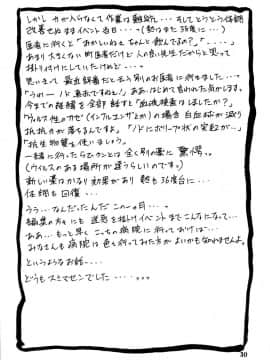 しかし 力が入らなくて 作業は難航… そしてとうとう体調
改善せぬままイベント当日・・・(熱はまだ38度に…)
医者に行くと「おかしいねェ ちゃんと飲んでるの?」「．．．．」
あまり大きくない町医者だけど 人の良い先生だからと思って
掛り付けにしていたけど…
思いきって 最近評判だと云う別のお医者に行きました…
「うわーノドまっ赤ですねェ」ああ、はじめて言われた気がします。
今までの経緯を全部話すと「血液検査はしましたか?」
「ウィルス性のカゼ(インフルエンザとか)の場合 白血球が減り
抵抗力が落ちるんですよ。」「ノドにポリープ状の突起が…」
「抗生物質も使いましょう。」
一緒に行ったらむこうとは全く別の薬に驚愕。
(ウィルスのある場所が違うらしいのです。)
新しい薬はかなり効果があり 熱も36度台に…
体調も回復…
うう… なんだったんだ この一ヵ月…。
編集の方々にも 迷惑を掛け イベントまでこんなになって…
ああ… もっと早く こっちの病院に行っておけば…
みなさんも病院は色々行ってみた方が よいかもなのませんよ。
というようなお話…
どうもスミマセンでした…
30